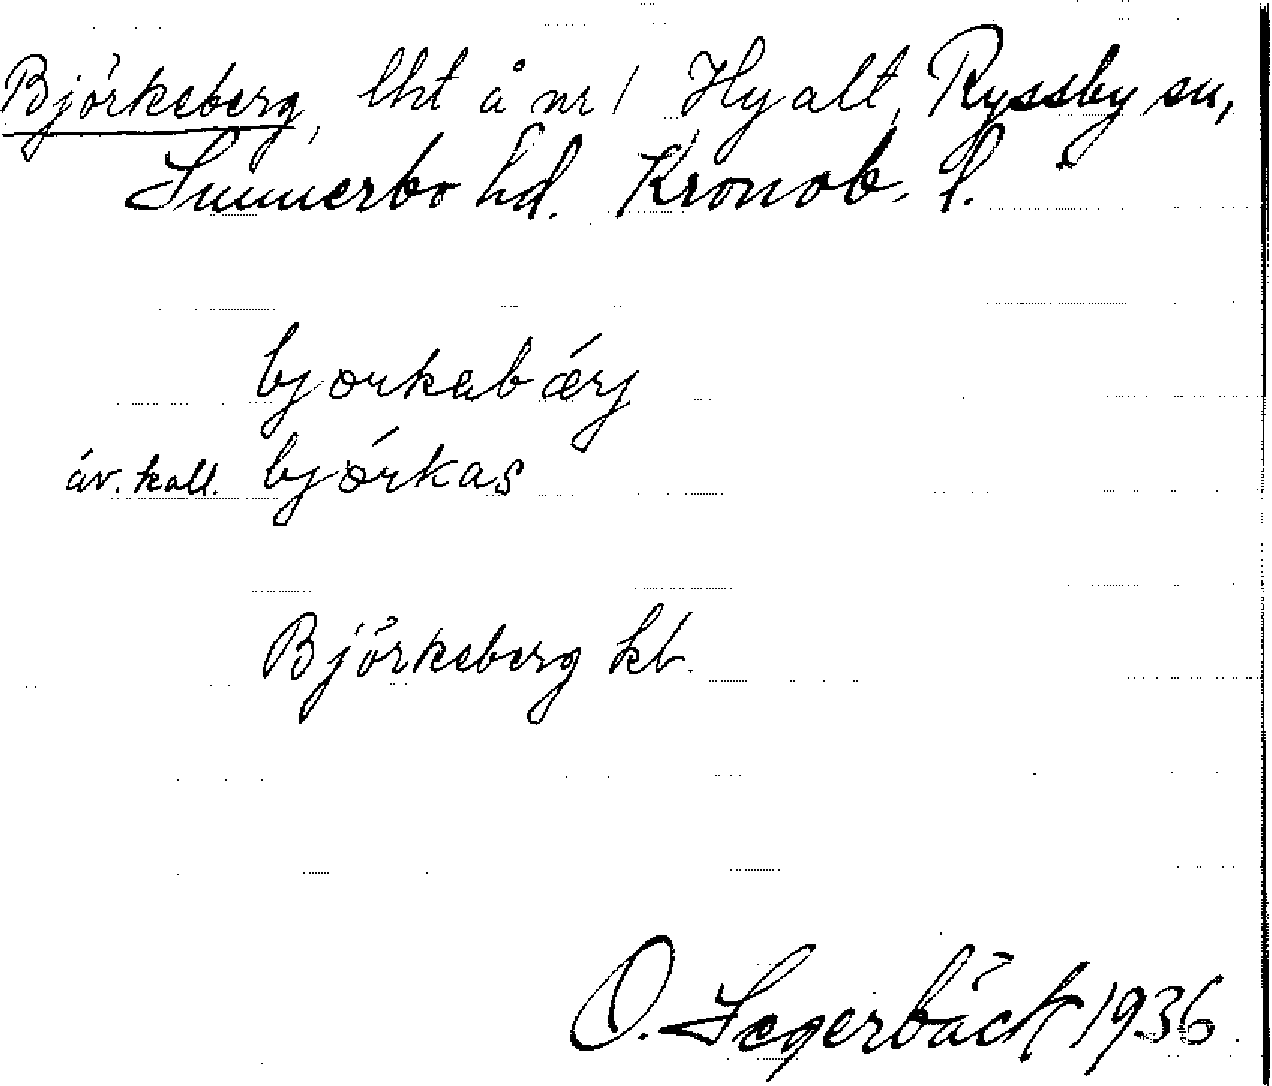 Björkeberg, lht å nr 1 Hyalt, Ryssby sn,
Sunnerbo hd. Kronob. l.
bjorkabǽrj
äv. kall. bjórkas
Björkeberg kb.
O. Segerbäck 1936